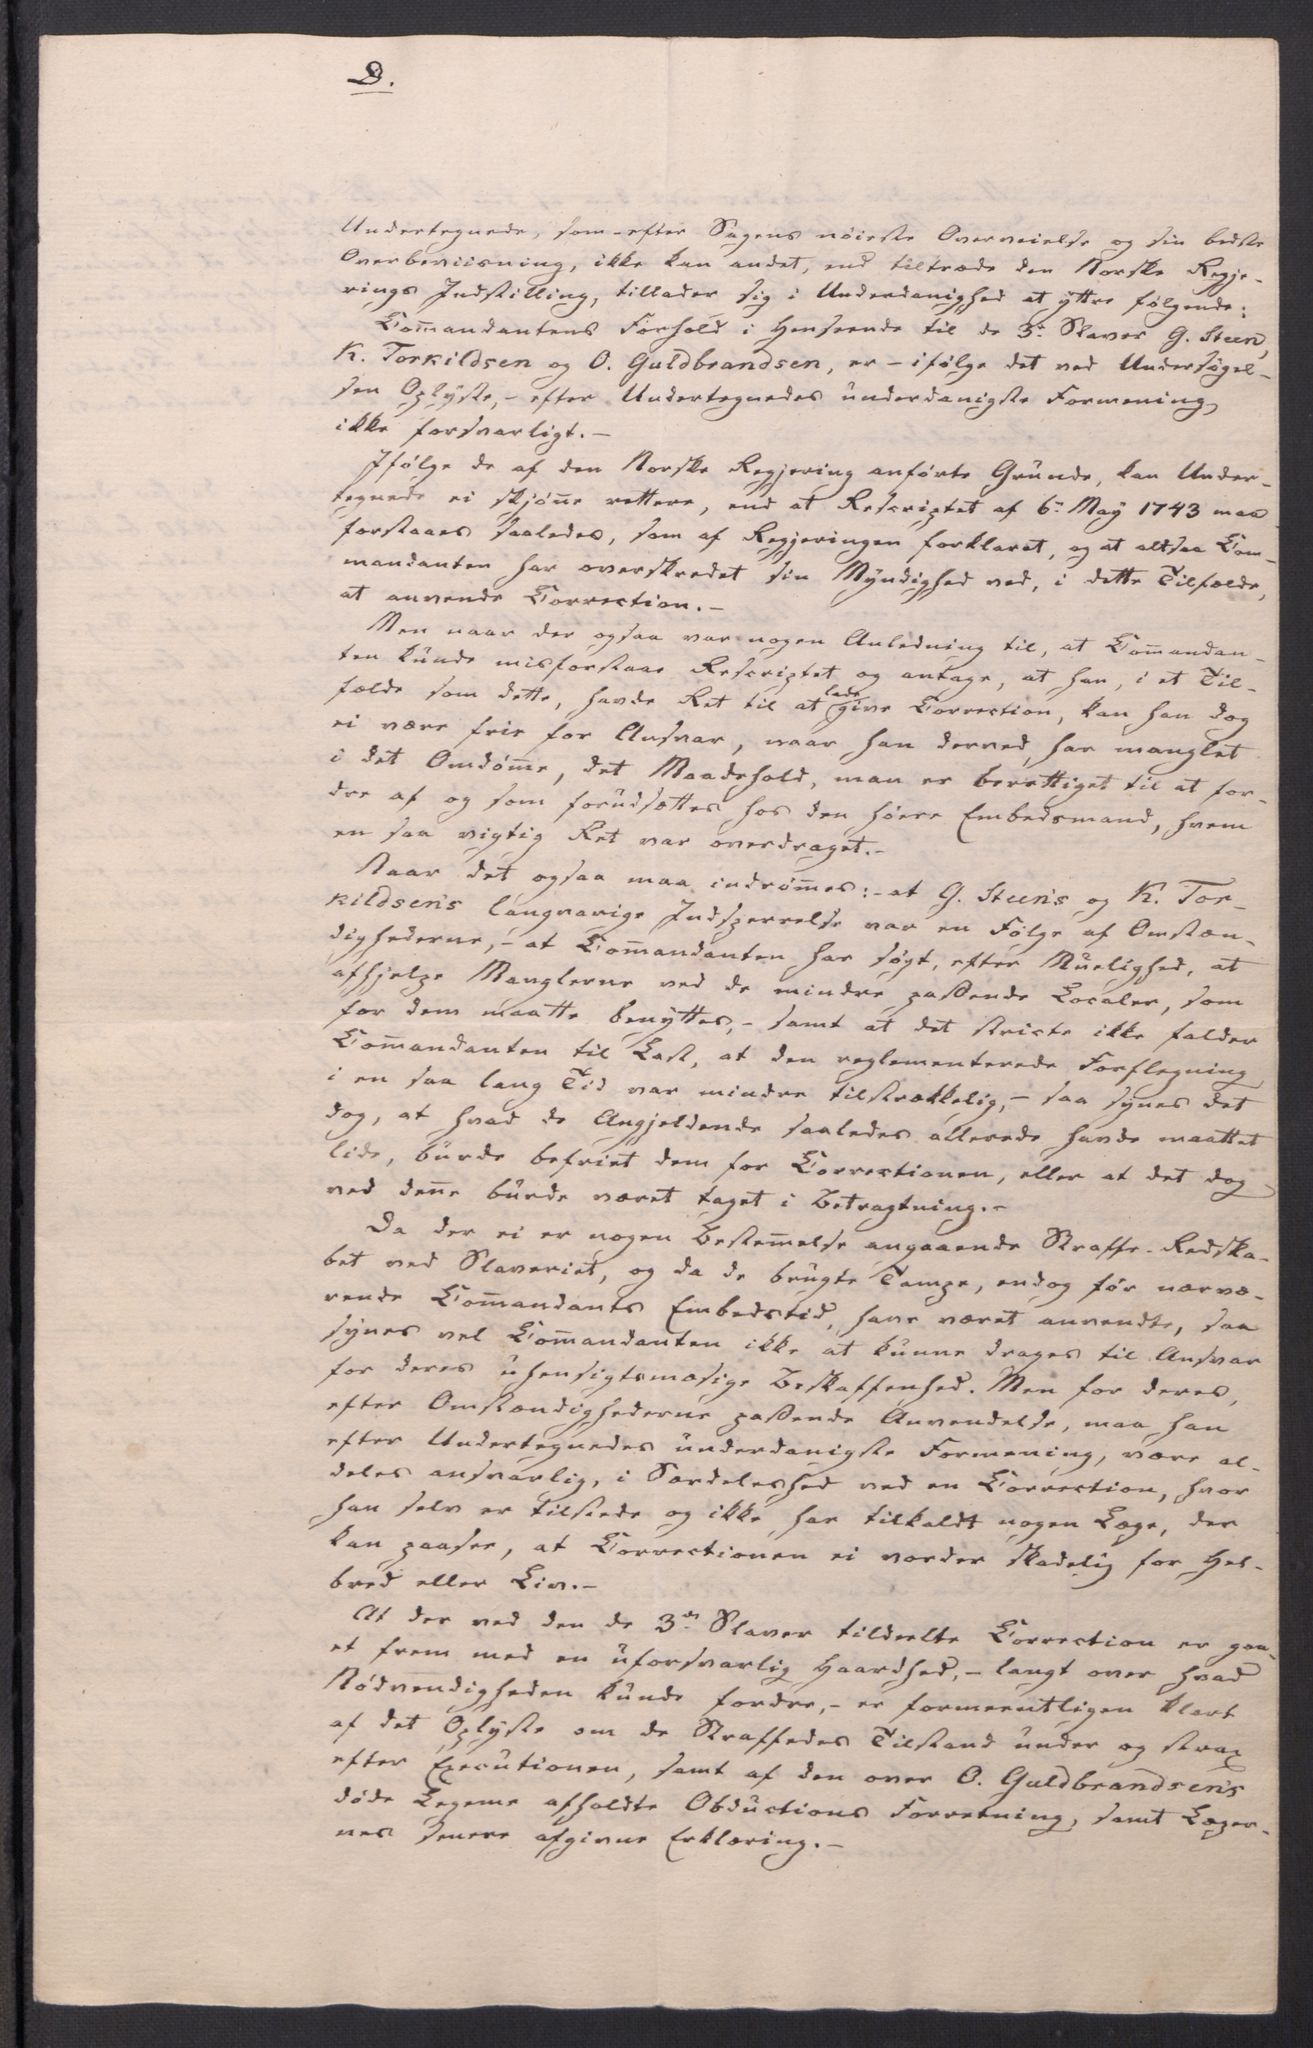 D.
Undertegnede, som efter Sagens nöieste Overveielse og sin bedste
Overbeviisning, ikke kan andet, end tiltræde den Norske Regje-
rings Indstilling, tillader sig i Underdanighed at yttre følgende:
Com̅andantens Forhold i Henseende til de 3de Slaver G. Steen,
K. Torkildsen og O. Guldbrandsen, er – ifølge det ved Undersögel-
sen Oplyste, – efter Undertegnedes underdanigste Formening,
ikke forsvarligt. –
Ifølge de af den Norske Regjering anførte Grunde, kan Under-
tegnede ei skjön̅e rettere, end at Rescriptet af 6te May 1743 maa
forstaaes saaledes, som af Regjeringen forklaret, og at altsaa Com-
mandanten har overskredet sin Myndighed ved, i dette Tilfælde,
at anvende Correction. –
Men naar der ogsaa var nogen Anledning til, at Com̅andan-
ten kunde misforstaae Rescriptet og antage, at han, i et Til-
fælde som dette, havde Ret til at lade give Correction, kan han dog
ei være frie for Ansvar, naar han derved har manglet
i det Omdöm̅e, det Maadehold, man er berettiget til at for-
dre af og som forudsættes hos den höiere Embedsmand, hvem
en saa vigtig Ret var overdraget. –
Naar det ogsaa maa indröm̅es: – at G. Steen's og K. Tor-
kildsen's langvarige Indsperrelse var en Fölge af Omstæn-
dighederne, – at Com̅andanten har sögt, efter Muelighed, at
afhjelpe Manglerne ved de mindre passende Localer, som
for dem maatte benyttes, – samt at det stricte ikke falder
Com̅andanten til Last, at den reglementerede Forflegning
i en saa lang Tid var mindre tilstrækkelig, – saa synes det
dog, at hvad de Angjeldende saaledes allerede havde maattet
lide, burde befriet dem for Correctionen, eller at det dog
ved den̅e burde været taget i Betragtning. –
Da der ei er nogen Bestem̅else angaaende Straffe-Redska-
bet ved Slaveriet, og da de brugte Tampe, endog för nærvæ-
rende Com̅andants Embedstid, have været anvendte, saa
synes vel Com̅andanten ikke at kunne drages til Ansvar
for deres uhensigtsmæsige Beskaffenhed. Men for deres,
efter Omstændighederne passende Anvendelse, maa han
efter Undertegnedes underdanigste Formening, være al-
deles ansvarlig, i Særdeleshed ved en Correction, hvor
han selv er tilstede og ikke har tilkaldt nogen Læge, der
kan paasee, at Correctionen ei vorder skadelig for Hel-
bred eller Liv. –
At der ved den de 3de Slaver tildeelte Correction er gaa-
et frem med en uforsvarlig Haardhed, – langt over hvad
Nödvendigheden kunde fordre, – er formeentligen klart
af det Oplyste om de Straffedes Tilstand under og strax
efter Executionen, samt af den over O. Guldbrandsen's
döde Legeme afholdte Obductions Forretning, samt Læger-
nes senere afgivne Erklæring. –